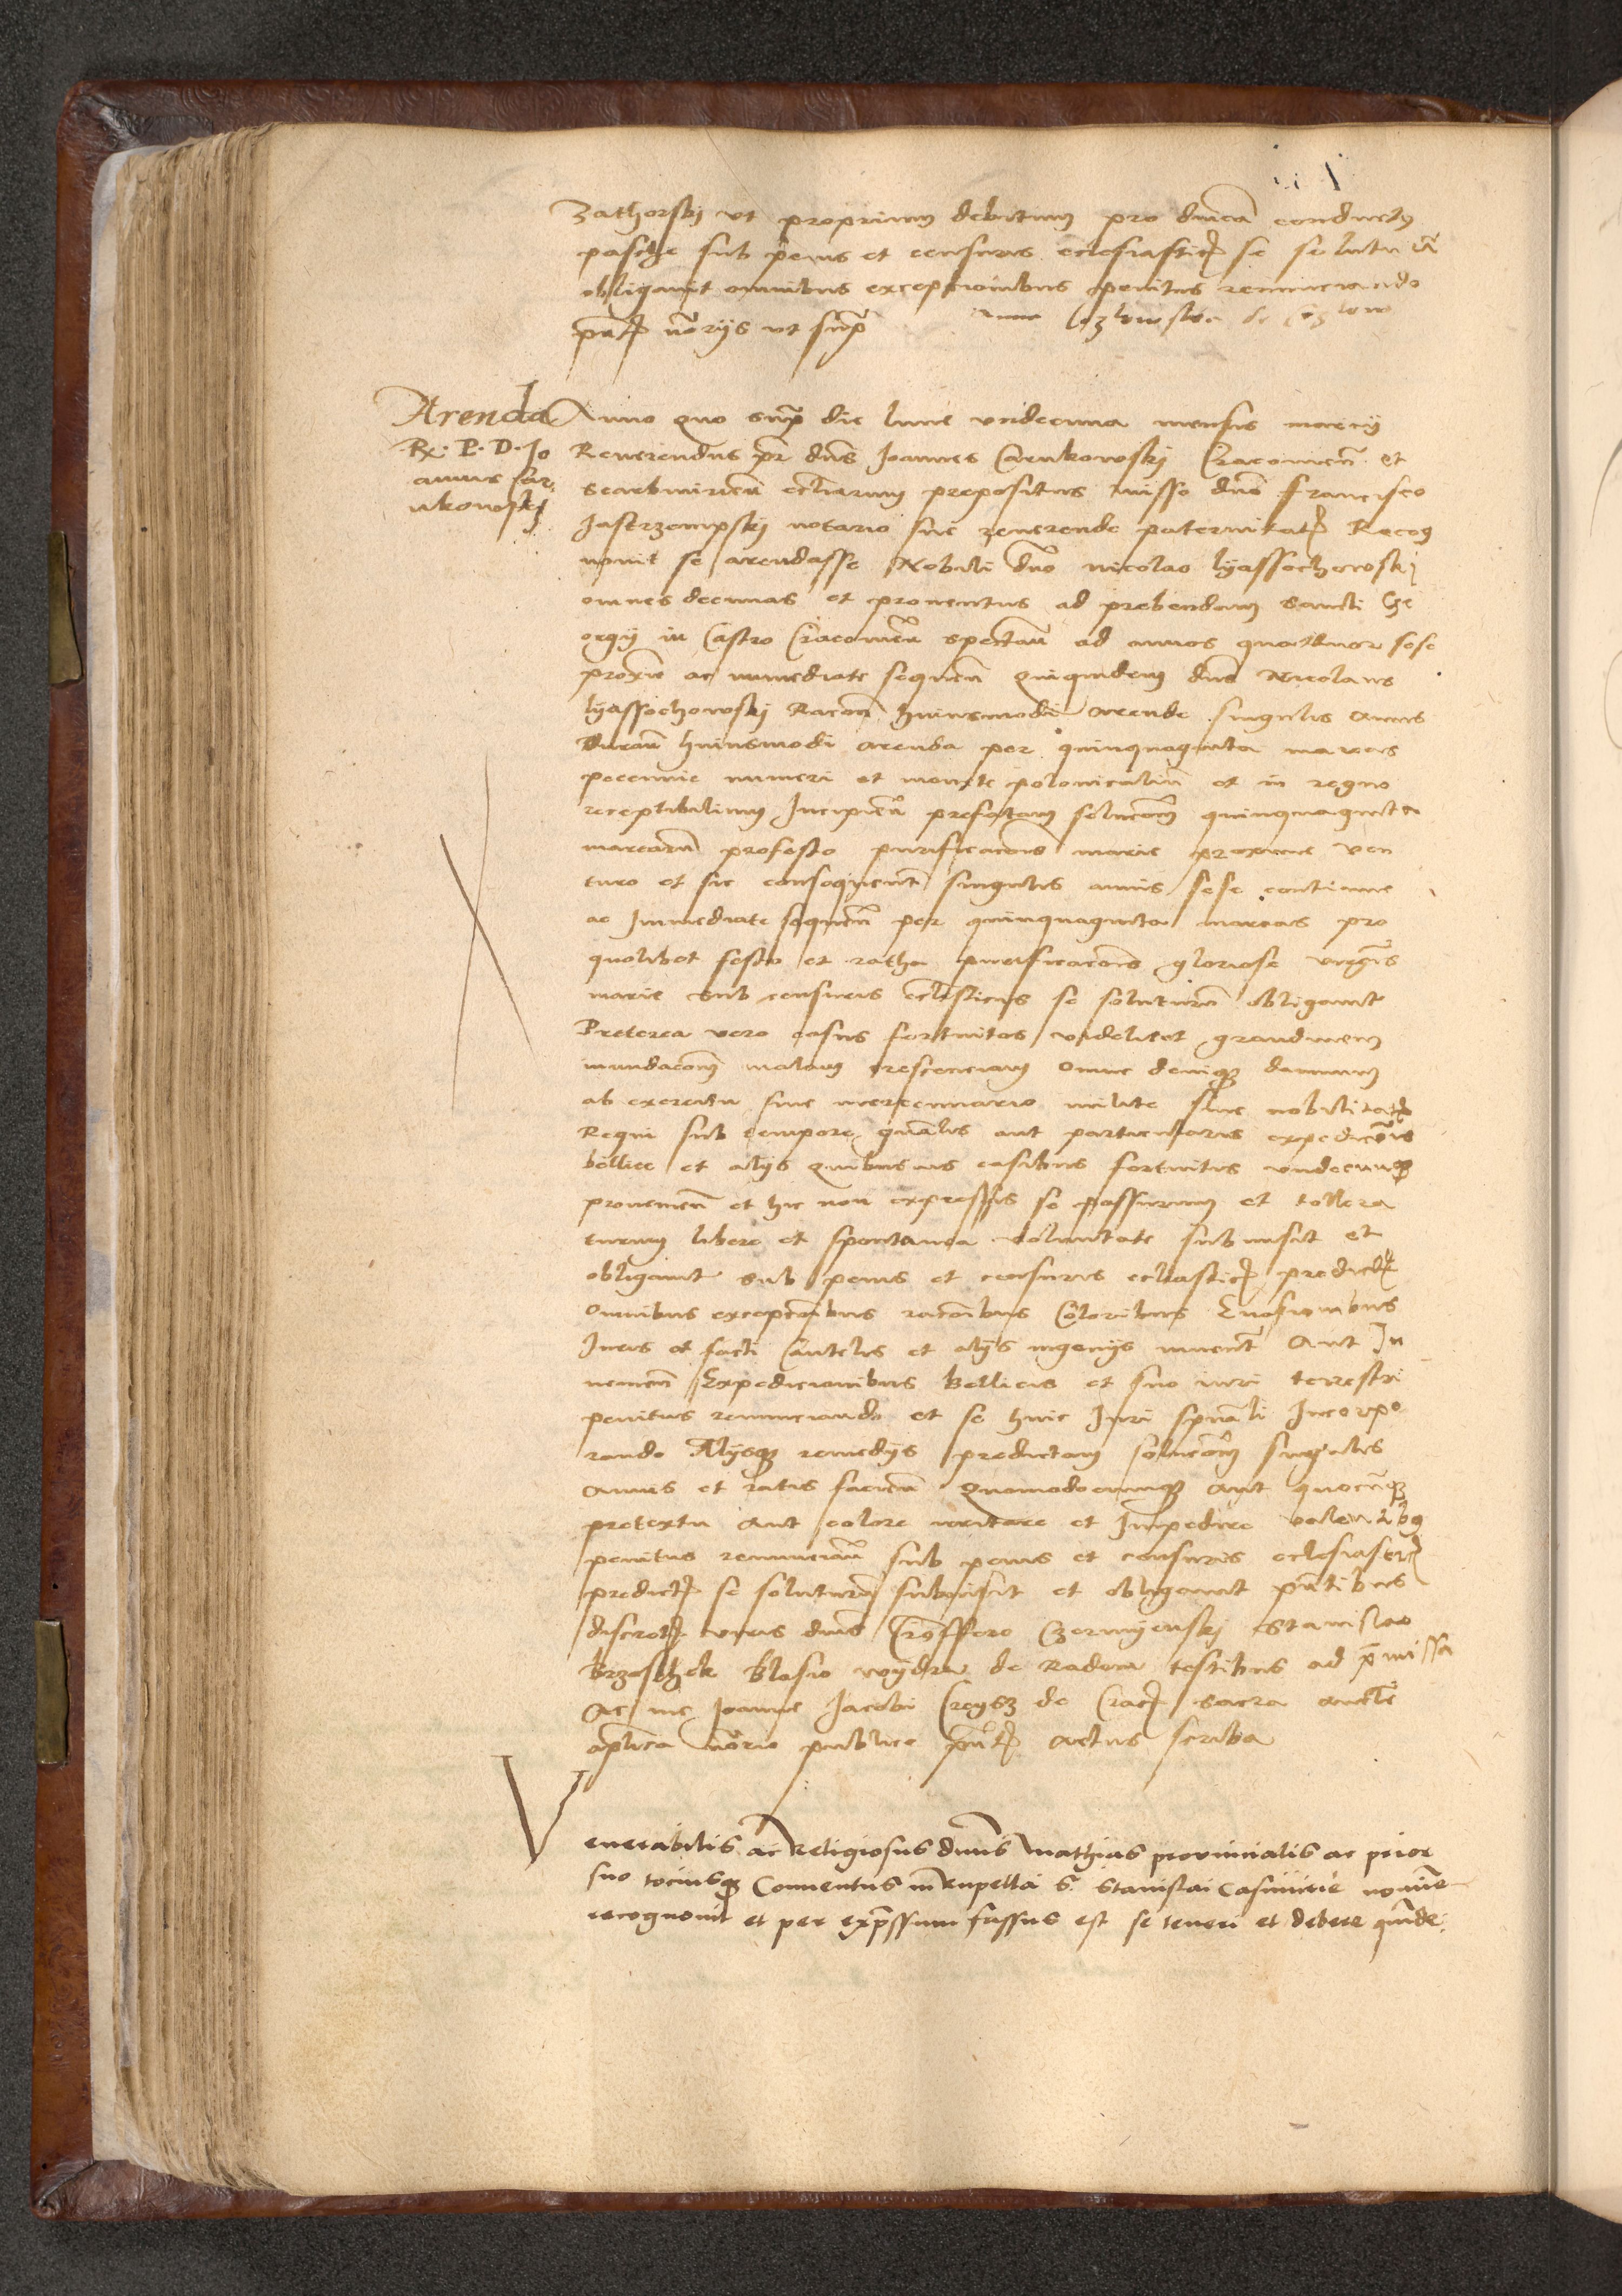 Zathorski vt proprium debitum pro dnica conductus
pasche sub penis et censuris ecclesiastic se soluturum
obligauit omnibus excepcionibus penitus renunciando
pntt noriis vt supra
Arenda
Rx. P. D. Jo
annis Car
nkowskj
Anno quo supra die lune vndecima mensis marcij
Reuerendus pr dns Joannes Carnkowskj Cracouien et
scarbimirien ecclarum prepositus misso dno Francisco
Jastrzempskj notario sue reuerende paternitatis Recog
nouit se arendasse Nobili dno nicolao lyassochowskj
omnes decimas et prouentus ad prebendam sancti Ge
orgij in Castro Cracouien spectan ad annos quattuor sese
proxime ac immediate sequen Quiquidem dns Nicolaus
lyassochowskj Racone huiusmodi arende singulis annis
duran huiusmodi arenda per quinquaginta marcas
peccunie numeri et monete polonicalium et in regno
receptibilium Incipien prefatam solucom quinquaginta
marcarum profesto purificacois marie proxime ven
turo et sic consequent singulis annis sese continue
ac Immediate sequen per quinquaginta marcas pro
quolibet festo et ratha purificacois gloriose virginis
marie sub censuris ecclesticis se soluturum obligauit
Preterea vero casus fortuitos videlicet grandinem
inundacom malam crescenciam omne denique damnum
ab exercitu siue mercennario milite siue nobilitatis
Regni sub tempore gnalis aut particularis expedicois
bellice et alijs quibusuis casibus fortuitis vndecunque
prouenien et hic non expressis se passurum et tollera
turum libere et spontanea voluntate submisit et
obligauit sub penis et censuris eclastic predictis
omnibus excepcoibus racoibus Coloribus Euasionibus
Juris et facti Cautelis et alijs ingenijs inuent aut In
uenien Expedicionibus Bellicis et suo iuri terrestri
penitus renunciando et se huic Juri spuali Incorpo
rando Alijsque remedijs predictam solucom singulis
annis et ratis facien Quomodocunque aut quocunque
pretextu aut colore irritare et Impedire valentibus
penitus renuncian sub penis et censuris eclesiastic
predict se soluturum submisit et obligauit pntibus
discretis viris dnis Cristoffero Czermyenskj Stanislao
Brzoschek Blasio wydra de Radom testibus ad premissa
Ac me Joanne Jacobi Creysz de Crac sacra aucte
aplica norio publico pntt actus scriba
Venerabilis ac Religiosus dnus Mathias prouincialis ac prior
suo tociusque Conuentus in Rupella S. Stanislai Casimirie nomine
recognouit et per expressum fassus est se teneri et debere quinde